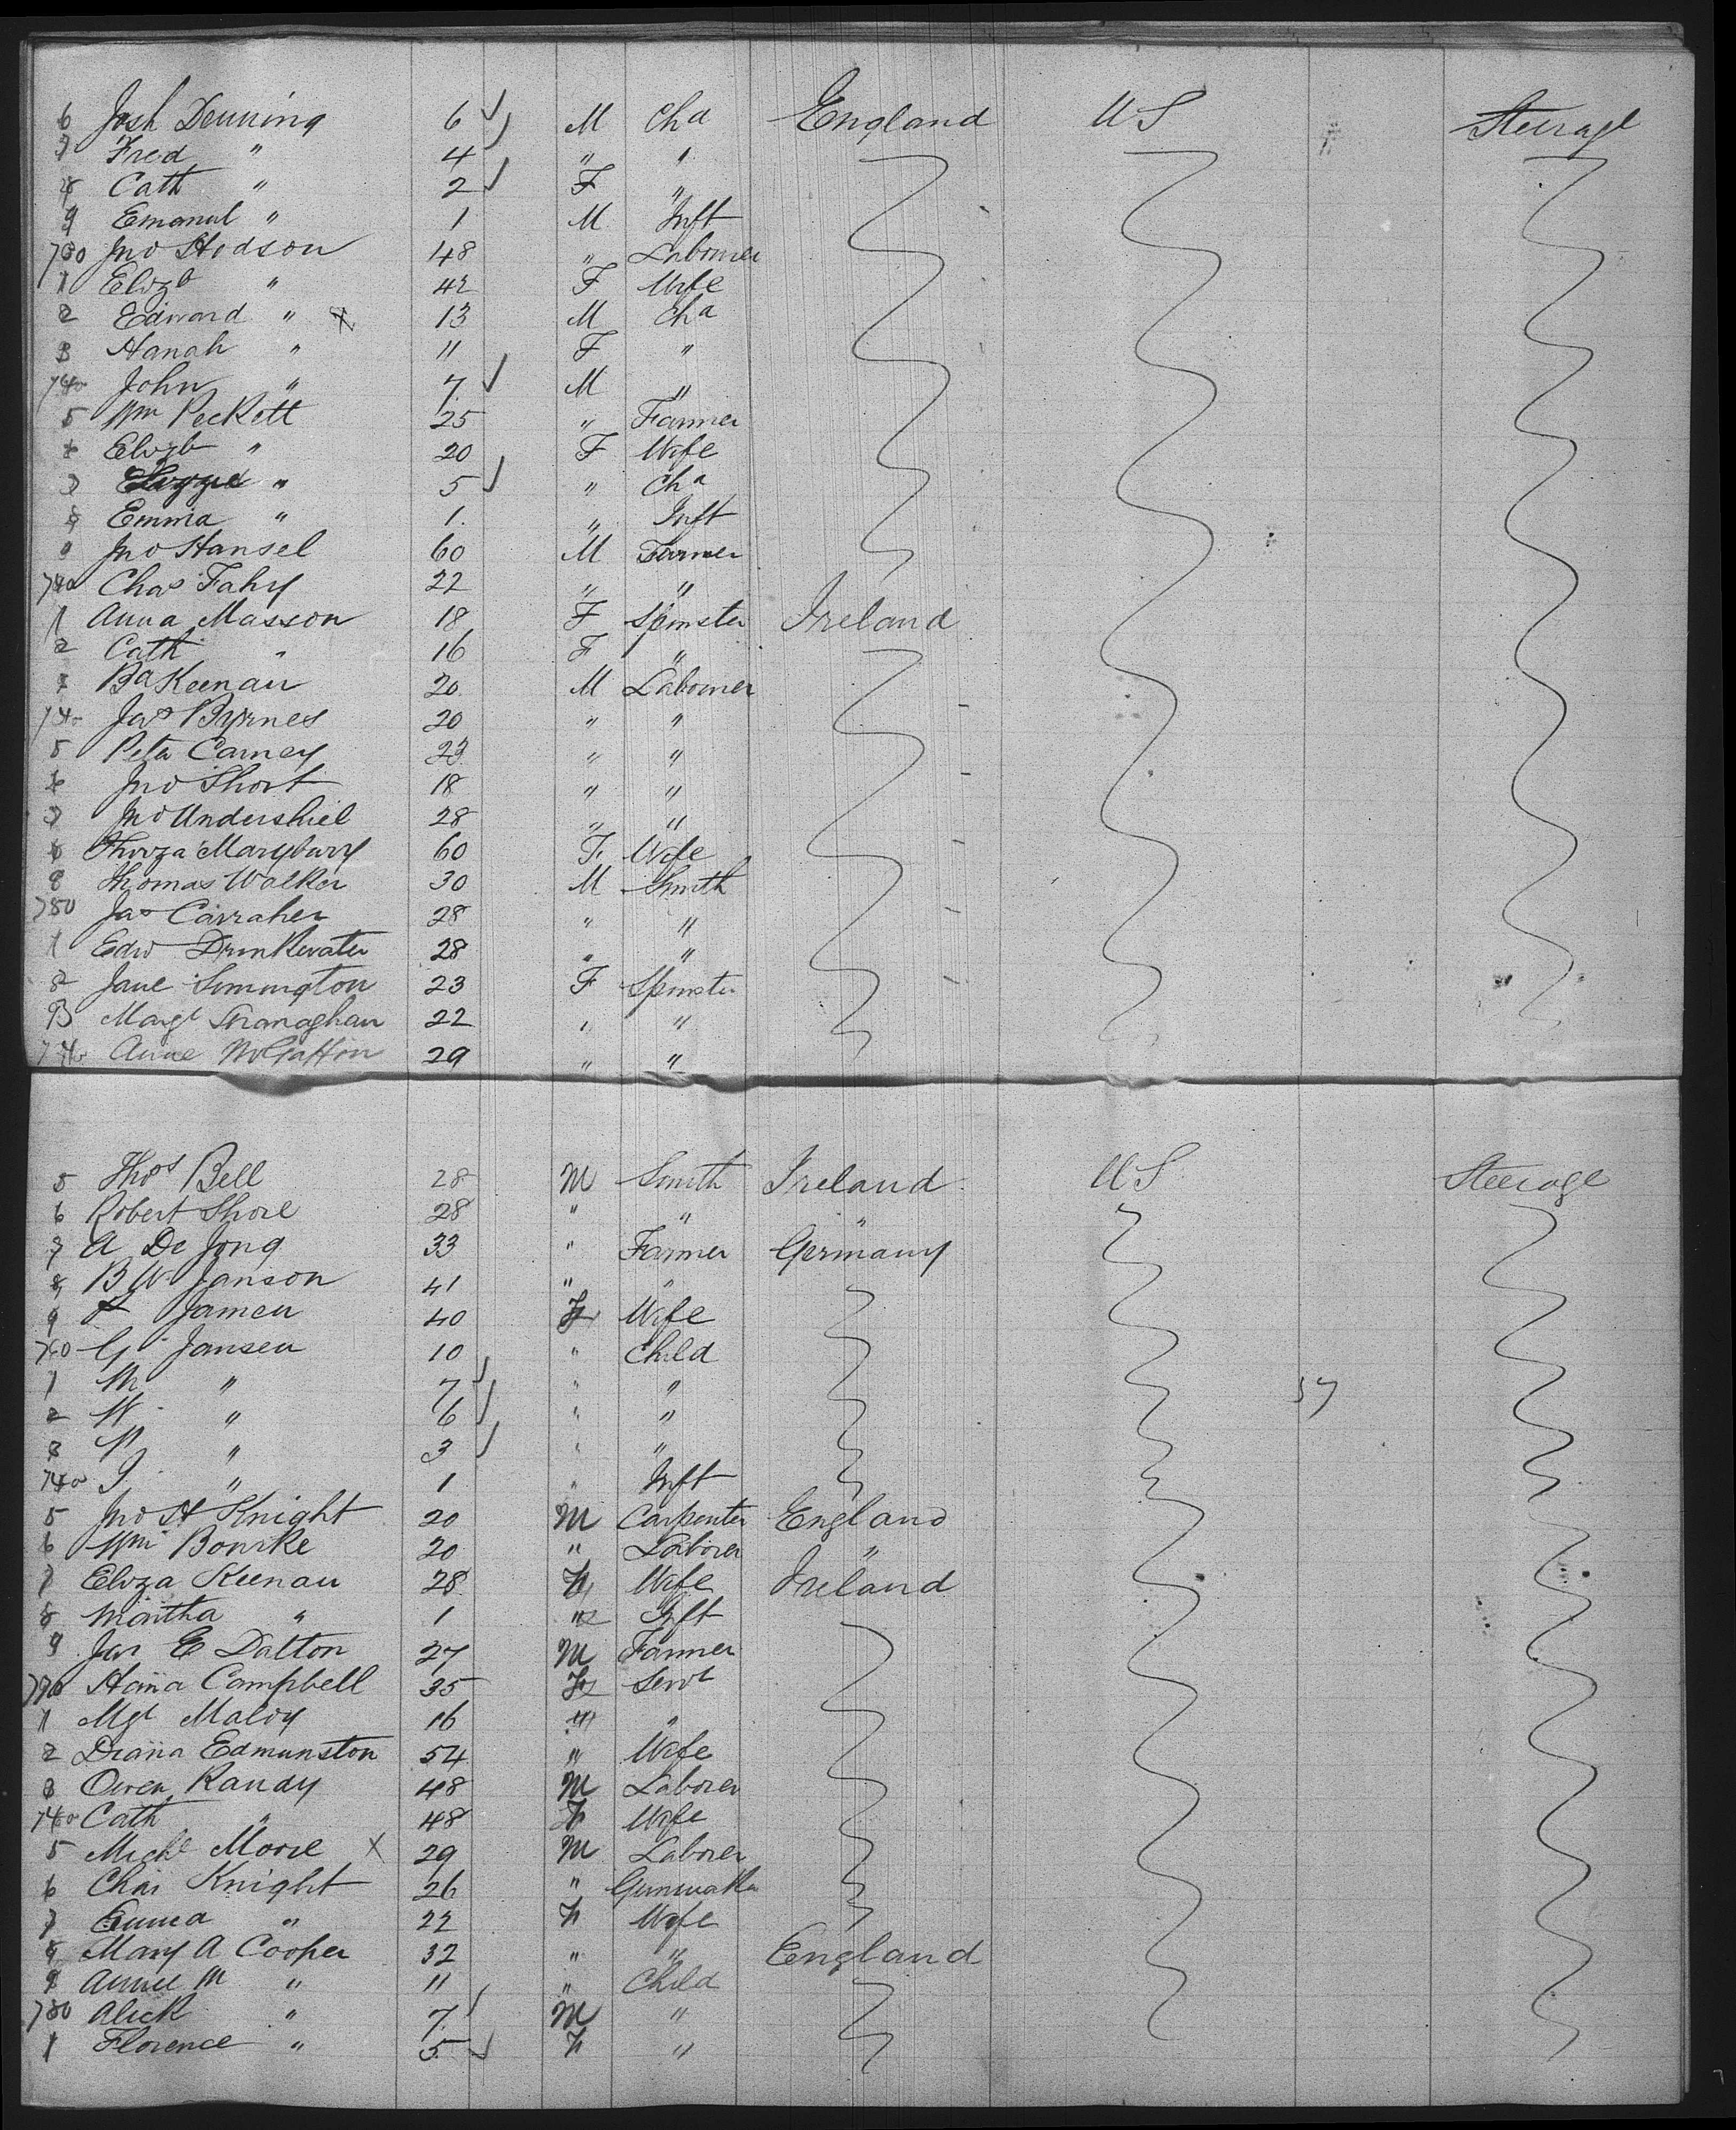 6 Josh Denning 6 M Cha England US Steerage
7 Fred " 4 " "
8 Cath " 2 F "
9 Emanul " 1 M Inft
730 Jno Hodson 48 " Labourer
1 Elizb " 42 F Wife
2 Edward " X 13 M Cha
3 Hanah " 11 F "
John " 7 M "
5 Wm Peckett 25 " Farmer
Elizb " 20 F Wife
" 5 " Cha
Emma " 1 " Inft
Jno Hansel 60 M Farmer
740 Chas Fahy 22 " "
1 Anna Masson 18 F Spinster Ireland
2 Cath " 16 F "
Keenan 20 M Labourer
Jas Byrnes 20 " "
5 Peter Carney 23 " "
6 Jno Short 18 " "
7 Jno Undershiel 28 " "
Marybury 60 F Wife
Thomas Walker 30 M Smith
750 Jas Carraher 28 " "
1 Edw Drinkwater 28 " "
2 Jane Simington 23 F Spinster
3 Margt Stranaghan 22 " "
Anne 29 " "
5 Thos Bell 28 M Smith Ireland US Steerage
6 Robert Shore 28 " " "
7 A De Jong 33 " Farmer Germany
8 B W Janson 41 " "
9 Jamen 40 F Wife
760 G Jansen 10 " Child
1 M " 7 " "
2 W " 6 " "
3 " 3 " "
" 1 " Inft
5 Jno H Knight 20 M Carpenter England
6 Wm Bourke 20 " Laborer "
7 Eliza Keenan 28 F Wife Ireland
8 Martha " 1 " Inft
9 Jas E Dalton 27 M Farmer
770 Hana Campbell 35 F Servt
1 Mgt Maloy 16 " "
2 Diana Edmunston 54 " Wife
3 Owen Randy 48 M Laborer
Cath " 48 F Wife
5 Michl Moore X 29 M Laborer
6 Chas Knight 26 " Gunmaker
7 Emma " 22 F Wife
8 Mary A Cooper 32 " " England
9 Annie M " 11 " Child
780 Alick " 7 M "
1 Florence " 5 F "